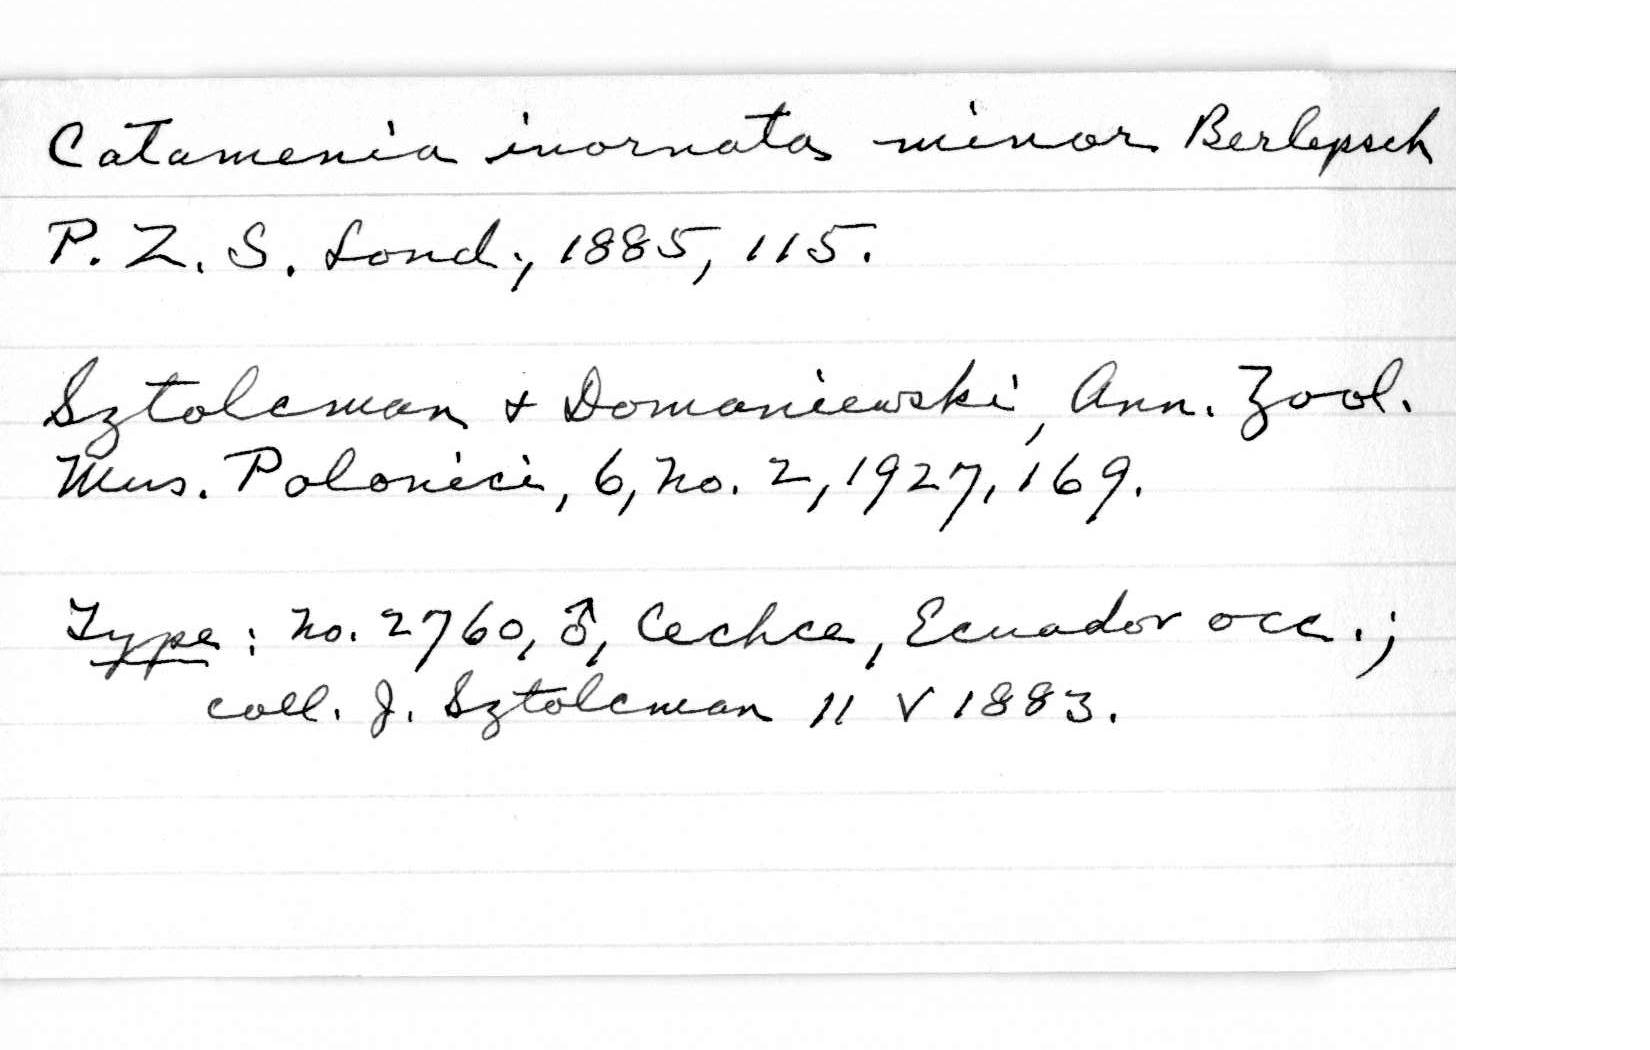 Catamenia inornata minor Berlepsch
P. Z. S. Lond., 1885, 115.
Sztolcman & Domaniewski, Ann. Zool.
Mus. Polonici, 6, no. 2, 1927, 169.
Type: no. 2760, ♂, Cechce, Ecuador occ.;
coll. J. Sztolcman 11 V 1883.